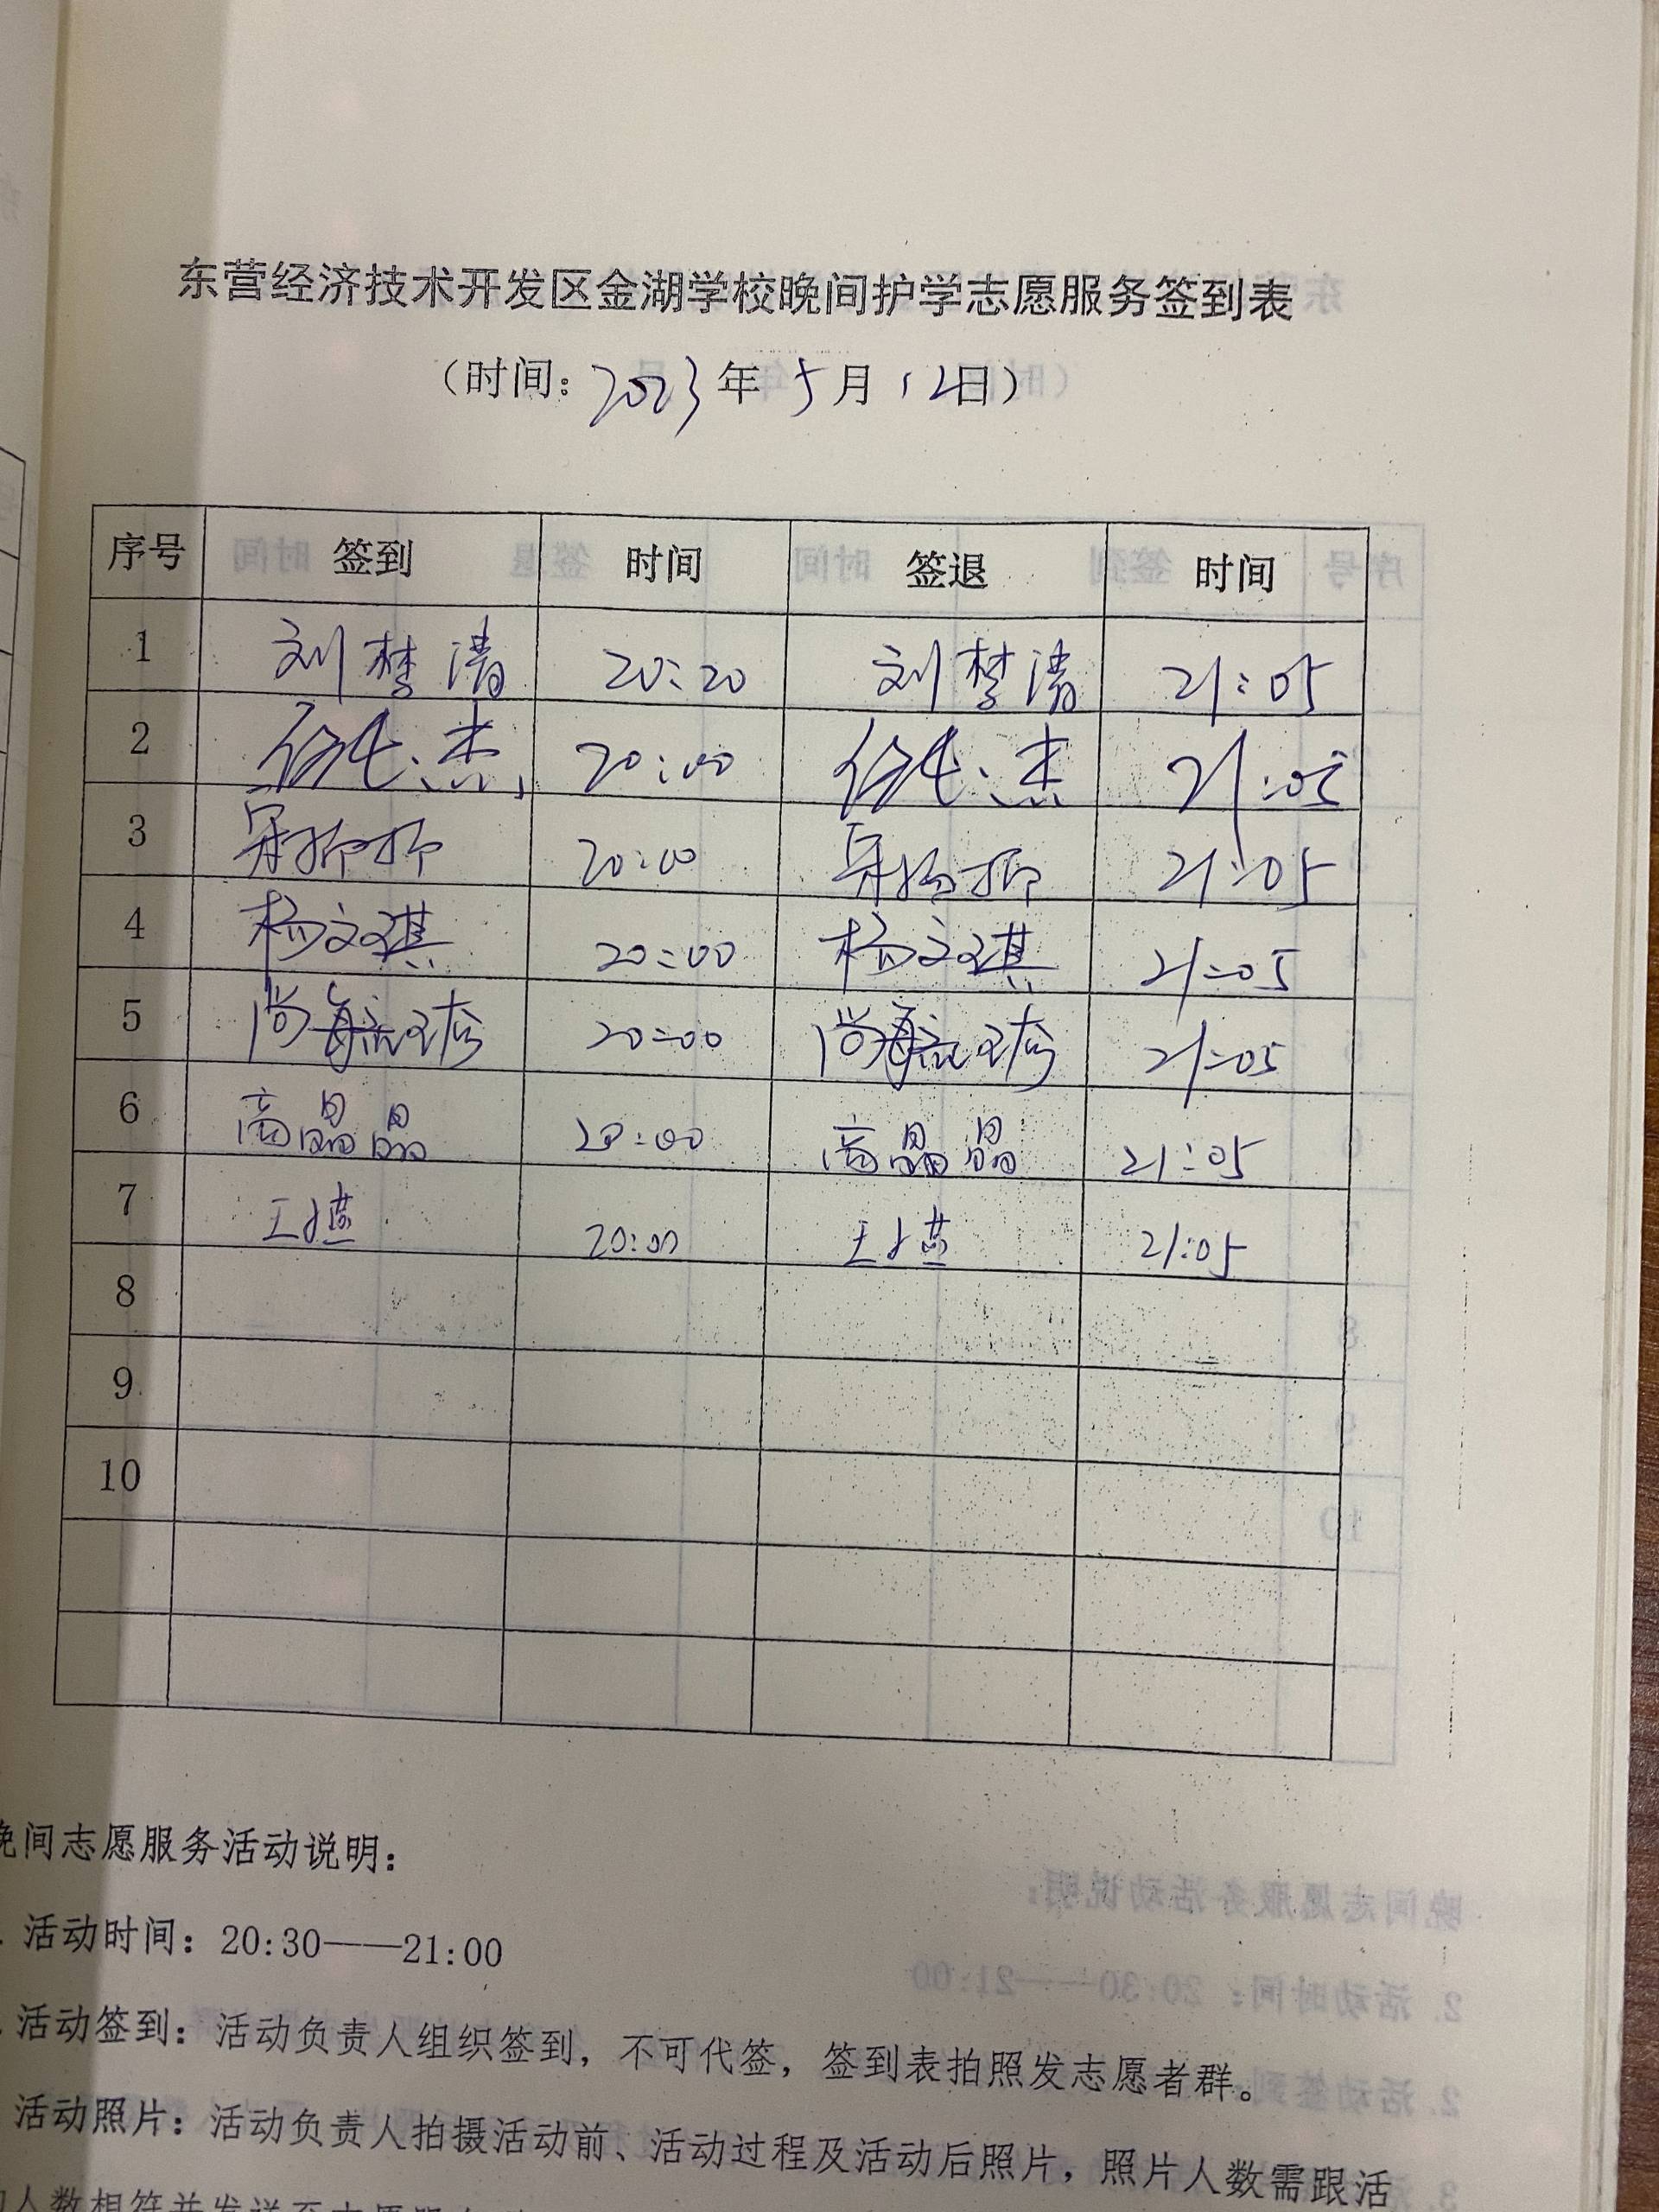 东营经济技术开发区金湖学校晚间护学志愿服务签到表
（时间：2023年5月12日）
序号 签到 时间 签退 时间
1 刘梦清 20:20 刘梦清 21:05
2 20:00 21:05
3 20:00 21:05
4 杨文琪 20:00 杨文琪 21:05
5 尚 20:00 尚 21:05
6 高晶晶 20:00 高晶晶 21:05
7 王燕 20:00 王燕 21:05
8
9
10
晚间志愿服务活动说明：
. 活动时间：20:30——21:00
. 活动签到：活动负责人组织签到，不可代签，签到表拍照发志愿者群。
活动照片：活动负责人拍摄活动前、活动过程及活动后照片，照片人数需跟活
人数相符并发送至志愿服